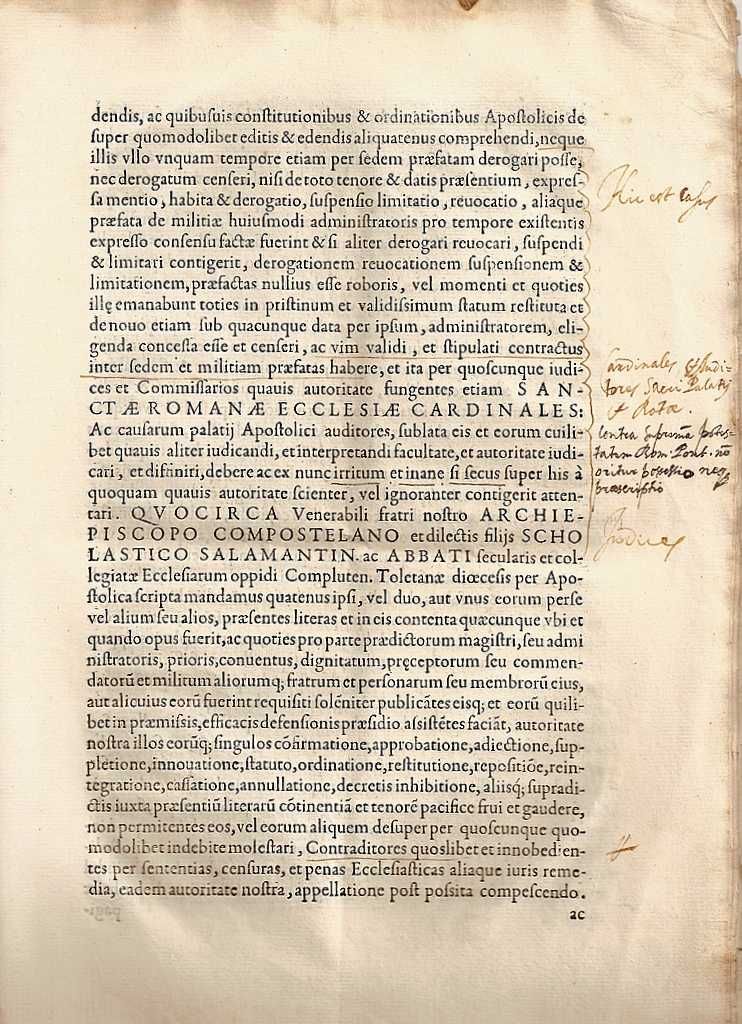 dendis, ac quibusuis constitutionibus & ordinationibus Apostolicis de
super quomodolibet editis & edendis aliquatenus comprehendi, neque
illis vllo vnquam tempore etiam per sedem præfatam derogari posse,
nec derogatum censeri, nisi de toto tenore & datis præsentium, expres-
sa mentio, habita & derogatio, suspensio limitatio, reuocatio, aliaque
præfata de militiæ huiusmodi administratoris pro tempore existentis
expresso consensu factæ fuerint & si aliter derogari reuocari, suspendi
& limitari contigerit, derogationem reuocationem suspensionem &
limitationem, præfactas nullius esse roboris, vel momenti et quoties
illę emanabunt toties in pristinum et validissimum statum restituta et
de nouo etiam sub quacunque data per ipsum, administratorem, eli-
genda concessa esse et censeri, ac vim validi, et stipulati contractus
inter sedem et militiam præfatas habere, et ita per quoscunque iudi-
ces et Commissarios quauis autoritate fungentes etiam SAN-
CTÆ ROMANÆ ECCLESIÆ CARDINALES:
Ac causarum palatij Apostolici auditores, sublata eis et eorum cuili-
bet quauis aliter iudicandi, et interpretandi facultate, et autoritate iudi-
cari, et diffiniri, debere ac ex nunc irritum et inane si secus super his à
quoquam quauis autoritate scienter, vel ignoranter contigerit atten-
tari. QVOCIRCA Venerabili fratri nostro ARCHIE-
PISCOPO COMPOSTELANO et dilectis filijs SCHO
LASTICO SALAMANTIN. ac ABBATI secularis et col-
legiatæ Ecclesiarum oppidi Compluten. Toletanæ diœcesis per Apo-
stolica scripta mandamus quatenus ipsi, vel duo, aut vnus eorum per se
vel alium seu alios, præsentes literas et in eis contenta quæcunque vbi et
quando opus fuerit, ac quoties pro parte prædictorum magistri, seu admi
nistratoris, prioris, conuentus, dignitatum, pręceptorum seu commen-
datorū et militum aliorumq; fratrum et personarum seu membrorū eius,
aut alicuius eorū fuerint requisiti solēniter publicātes eisq; et eorū quili-
bet in præmissis, efficacis defensionis præsidio assistētes faciāt, autoritate
nostra illos eorūq; singulos cōfirmatione, approbatione, adiectione, sup-
pletione, innouatione, statuto, ordinatione, restitutione, repositiōe, rein-
tegratione, cassatione, annullatione, decretis inhibitione, aliisq; supradi-
ctis iuxta præsentiū literarū cōtinentiā et tenorē pacifice frui et gaudere,
non permitentes eos, vel eorum aliquem desuper per quoscunque quo-
modolibet indebite molestari, Contraditores quoslibet et innobedien-
tes per sententias, censuras, et penas Ecclesiasticas aliaque iuris reme-
dia, eadem autoritate nostra, appellatione post possita compescendo.
ac
Hic est casus
Cardinales et Audi-
tores Sacri Palatij
et Rotæ.
Contra supremā potes-
tatem Rom. Pont. nō
oritur possessio neq
præscriptio
Iudices